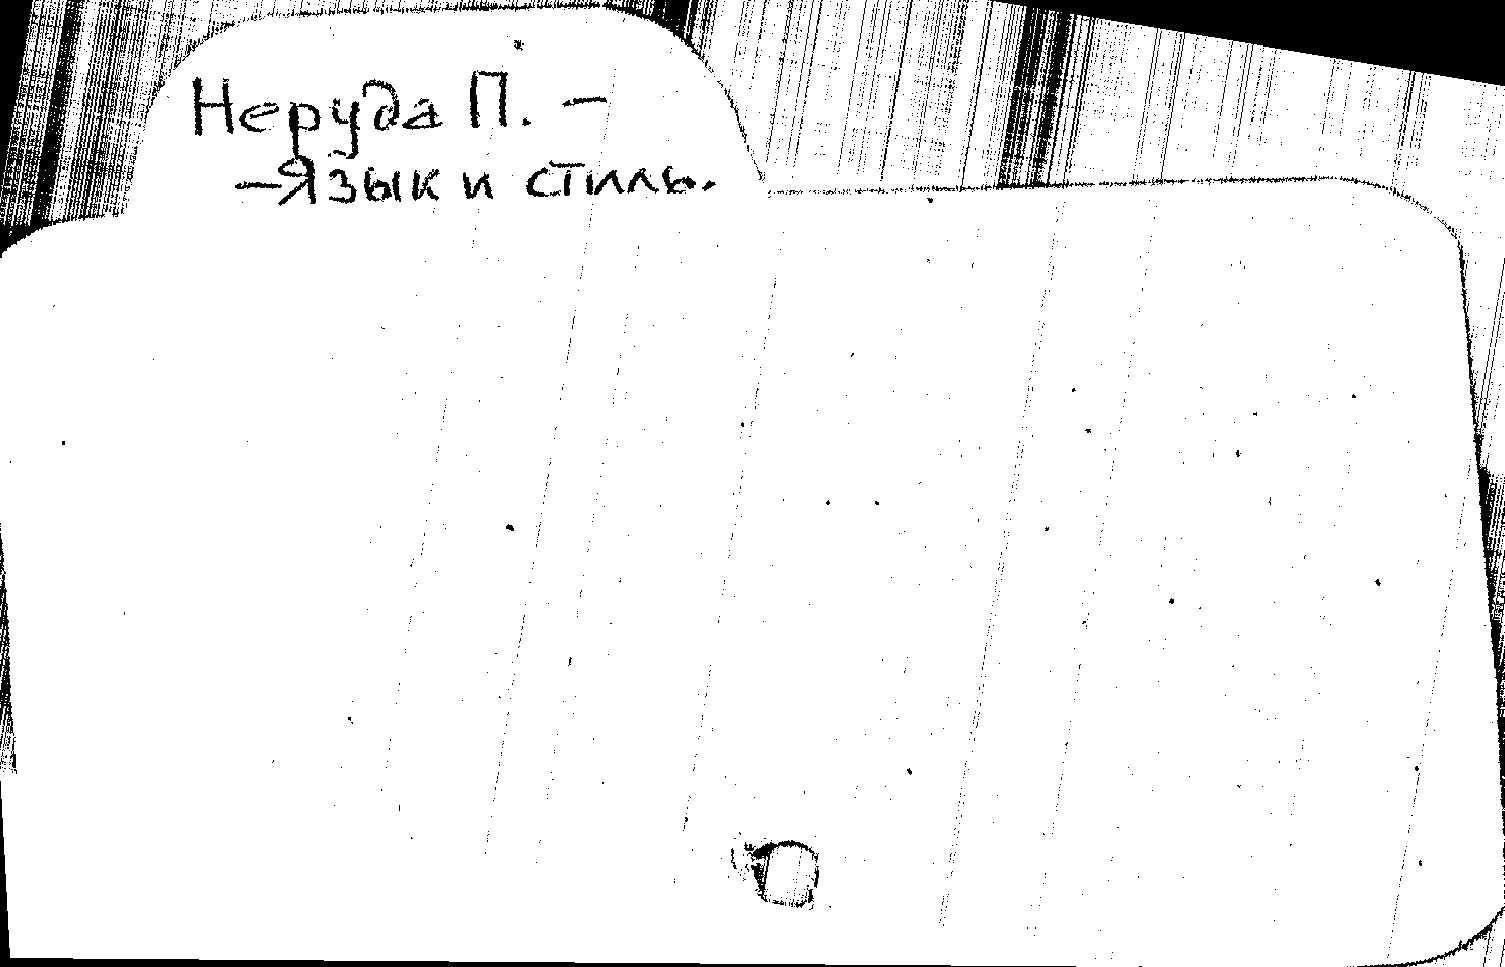 Неруда П. –
– Язык и стиль.